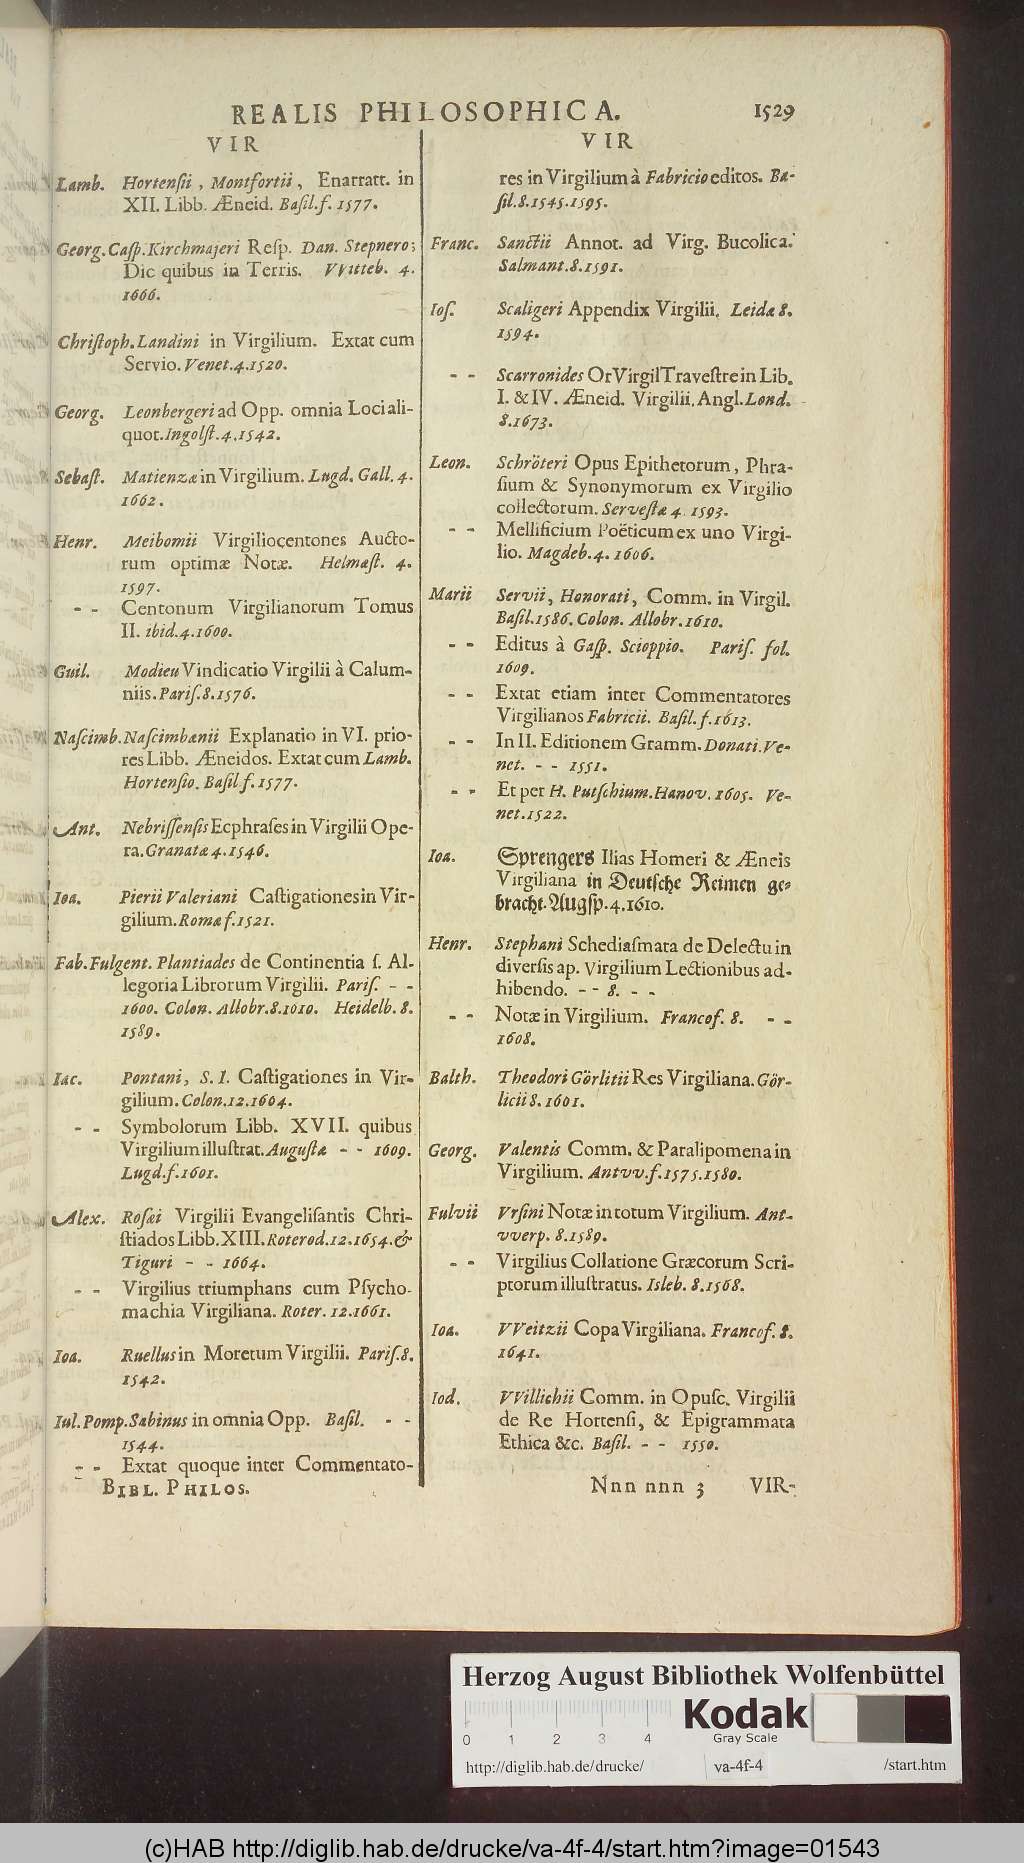 REALIS PHILOSOPHICA. 1529
VIR
Lamb. Hortensii, Montfortii, Enarratt. in
XII. Libb. Æneid. Basil. f. 1577.
Georg. Casp. Kirchmajeri Resp. Dan. Stepnero;
Dic quibus in Terris. VVitteb. 4.
1666.
Christoph. Landini in Virgilium. Extat cum
Servio. Venet. 4. 1520.
Georg. Leonbergeri ad Opp. omnia Loci ali-
quot. Ingolst. 4. 1542.
Sebast. Matienzæ in Virgilium. Lugd. Gall. 4.
1662.
Henr. Meibomii Virgiliocentones Aucto-
rum optimæ Notæ. Helmæst. 4.
1597.
- - Centonum Virgilianorum Tomus
II. ibid. 4. 1600.
Guil. Modieu Vindicatio Virgilii à Calum-
niis. Paris. 8. 1576.
Nascimb. Nascimbænii Explanatio in VI. prio-
res Libb. Æneidos. Extat cum Lamb.
Hortensio. Basil f. 1577.
Ant. Nebrissensis Ecphrases in Virgilii Ope-
ra. Granatæ 4. 1546.
Ioa. Pierii Valeriani Castigationes in Vir-
gilium. Romæ f. 1521.
Fab. Fulgent. Plantiades de Continentia s. Al-
legoria Librorum Virgilii. Paris. - -
1600. Colon. Allobr. 8. 1010. Heidelb. 8.
1589.
Iac. Pontani, S. I. Castigationes in Vir-
gilium. Colon. 12. 1604.
- - Symbolorum Libb. XVII. quibus
Virgilium illustrat. Augustæ - - 1609.
Lugd. f. 1601.
Alex. Rosæi Virgilii Evangelisantis Chri-
stiados Libb. XIII. Roterod. 12. 1654. &
Tiguri - - 1664.
- - Virgilius triumphans cum Psycho-
machia Virgiliana. Roter. 12. 1661.
Ioa. Ruellus in Moretum Virgilii. Paris. 8.
1542.
Iul. Pomp. Sabinus in omnia Opp. Basil. - -
1544.
- - Extat quoque inter Commentato-
BIBL. PHILOS.
VIR
res in Virgilium à Fabricio editos. Ba-
sil. 8. 1545. 1595.
Franc. Sanctii Annot. ad Virg. Bucolica.
Salmant. 8. 1591.
Ios. Scaligeri Appendix Virgilii. Leidæ 8.
1594.
- - Scarronides Or Virgil Travestre in Lib.
I. & IV. Æneid. Virgilii. Angl. Lond.
8. 1673.
Leon. Schröteri Opus Epithetorum, Phra-
sium & Synonymorum ex Virgilio
collectorum. Servestæ 4. 1593.
- - Mellificium Poëticum ex uno Virgi-
lio. Magdeb. 4. 1606.
Marii Servii, Honorati, Comm. in Virgil.
Basil. 1586. Colon. Allobr. 1610.
- - Editus à Gasp. Scioppio. Paris. fol.
1609.
- - Extat etiam inter Commentatores
Virgilianos Fabricii. Basil. f. 1613.
- - In II. Editionem Gramm. Donati. Ve-
net. - - 1551.
- - Et per H. Putschium. Hanov. 1605. Ve-
net. 1522.
Ioa. Sprengers Ilias Homeri & Æneis
Virgiliana in Deutsche Reimen ge-
bracht. Augsp. 4. 1610.
Henr. Stephani Schediasmata de Delectu in
diversis ap. Virgilium Lectionibus ad-
hibendo. - - 8. - -
- - Notæ in Virgilium. Francof. 8. - -
1608.
Balth. Theodori Görlitii Res Virgiliana. Gör-
licii 8. 1601.
Georg. Valentis Comm. & Paralipomena in
Virgilium. Antvv. f. 1575. 1580.
Fulvii Vrsini Notæ in totum Virgilium. Ant-
vverp. 8. 1589.
- - Virgilius Collatione Græcorum Scri-
ptorum illustratus. Isleb. 8. 1568.
Ioa. VVeitzii Copa Virgiliana. Francof. 8.
1641.
Iod. VVillichii Comm. in Opusc. Virgilii
de Re Hortensi, & Epigrammata
Ethica &c. Basil. - - 1550.
Nnn nnn 3 VIR-
Herzog August Bibliothek Wolfenbüttel
0 1 2 3 4
Kodak
Gray Scale
http://diglib.hab.de/drucke/ va-4f-4 /start.htm
(c)HAB http://diglib.hab.de/drucke/va-4f-4/start.htm?image=01543